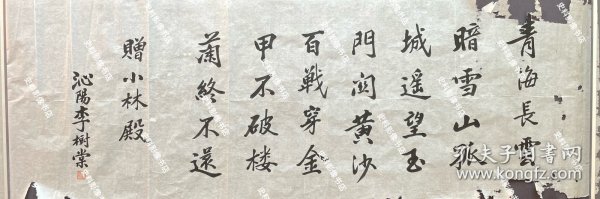 青海長雲
暗雪山孤
城遥望玉
門関黄沙
百戰穿金
甲不破楼
蘭終不還
贈小林殿
沁陽李樹棠
夫子旧书网
www.kongfz.com